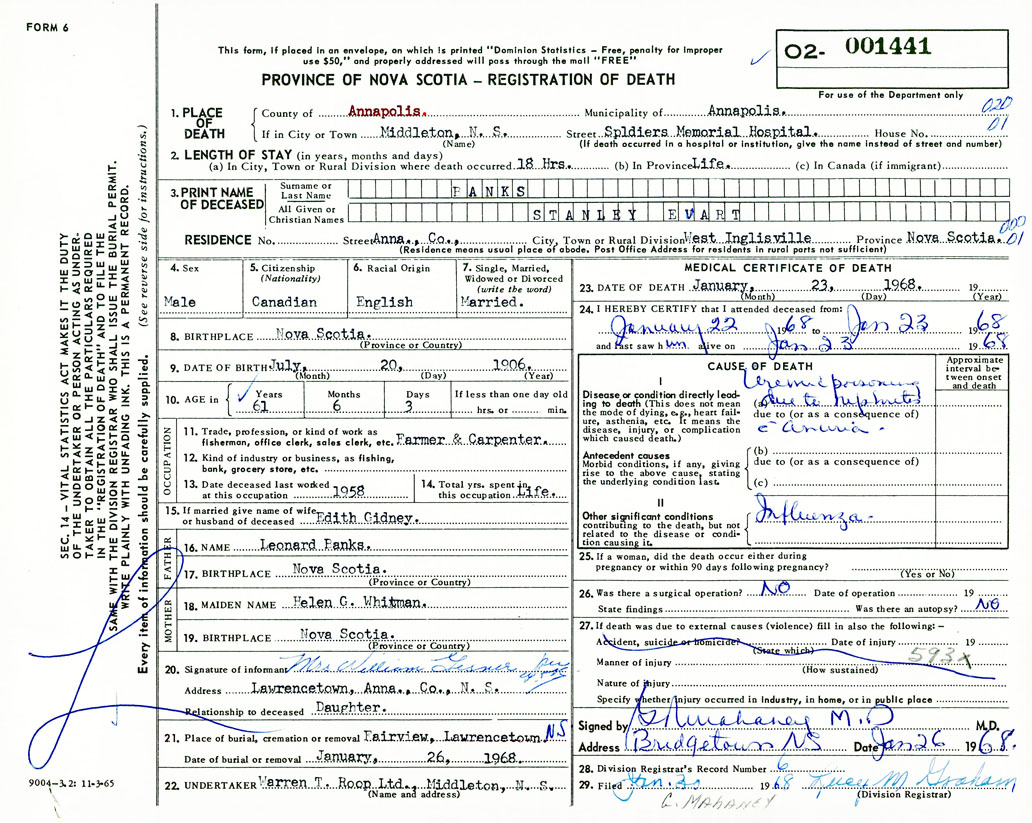 FORM 6
This form, if placed in an envelope, on which is printed "Dominion Statistics – Free, penalty for improper
use $50," and properly addressed will pass through the mail "FREE"
PROVINCE OF NOVA SCOTIA – REGISTRATION OF DEATH
O2- 001441
For use of the Department only
020
01
1. PLACE OF DEATH County of Annapolis. Municipality of Annapolis.
If in City or Town Middleton, N. S. Street Spldiers Memorial Hospital. House No.
(Name) (If death occurred in a hospital or institution, give the name instead of street and number)
2. LENGTH OF STAY (in years, months and days)
(a) In City, Town or Rural Division where death occurred 18 Hrs. (b) In Province Life. (c) In Canada (if immigrant)
3. PRINT NAME OF DECEASED
Surname or Last Name BANKS
All Given or Christian Names STANLEY EVART
000
01
RESIDENCE No. Street Anna., Co., City, Town or Rural Division West Inglisville Province Nova Scotia.
(Residence means usual place of abode. Post Office Address for residents in rural parts not sufficient)
4. Sex
Male
5. Citizenship
(Nationality)
Canadian
6. Racial Origin
English
7. Single, Married,
Widowed or Divorced
(write the word)
Married.
8. BIRTHPLACE Nova Scotia.
(Province or Country)
9. DATE OF BIRTH July, 20, 1906.
(Month) (Day) (Year)
10. AGE in Years Months Days If less than one day old
61 6 3 hrs. or min.
OCCUPATION
11. Trade, profession, or kind of work as
fisherman, office clerk, sales clerk, etc. Farmer & Carpenter.
12. Kind of industry or business, as fishing,
bank, grocery store, etc.
13. Date deceased last worked
at this occupation 1958
14. Total yrs. spent in
this occupation Life.
15. If married give name of wife
or husband of deceased Edith Gidney.
FATHER
16. NAME Leonard Banks.
17. BIRTHPLACE Nova Scotia.
(Province or Country)
MOTHER
18. MAIDEN NAME Helen G. Whitman.
19. BIRTHPLACE Nova Scotia.
(Province or Country)
20. Signature of informant Mrs William Gesner per
Address Lawrencetown, Anna., Co., N. S.
Relationship to deceased Daughter.
21. Place of burial, cremation or removal Fairview, Lawrencetown NS
Date of burial or removal January, 26, 1968.
22. UNDERTAKER Warren T. Roop Ltd., Middleton, N. S.
(Name and address)
MEDICAL CERTIFICATE OF DEATH
23. DATE OF DEATH January, 23, 1968. 19
(Month) (Day) (Year)
24. I HEREBY CERTIFY that I attended deceased from:
January 22 1968 to Jan 23 1968
and last saw him alive on Jan 23 1968
CAUSE OF DEATH
Approximate
interval be-
tween onset
and death
I
Disease or condition directly lead-
ing to death (This does not mean
the mode of dying, e.g., heart fail-
ure, asthenia, etc. It means the
disease, injury, or complication
which caused death.)
Uremic poisoning
(a) due to nephritis
due to (or as a consequence of)
c̄ anuria.
Antecedent causes
Morbid conditions, if any, giving
rise to the above cause, stating
the underlying condition last.
(b)
due to (or as a consequence of)
(c)
II
Other significant conditions
contributing to the death, but not
related to the disease or condi-
tion causing it.
Influenza.
25. If a woman, did the death occur either during
pregnancy or within 90 days following pregnancy?
(Yes or No)
26. Was there a surgical operation? NO Date of operation 19
State findings Was there an autopsy? NO
27. If death was due to external causes (violence) fill in also the following: –
Accident, suicide or homicide? Date of injury 19
(State which)
593x
Manner of injury
(How sustained)
Nature of injury
Specify whether injury occurred in industry, in home, or in public place
Signed by G Mahaney M.D M.D.
Address Bridgetown NS Date Jan 26 1968.
28. Division Registrar's Record Number 6
29. Filed Jan. 30 1968 Lucy M Graham
(Division Registrar)
G. MAHANEY
SEC. 14 – VITAL STATISTICS ACT MAKES IT THE DUTY
OF THE UNDERTAKER OR PERSON ACTING AS UNDER-
TAKER TO OBTAIN ALL THE PARTICULARS REQUIRED
IN THE "REGISTRATION OF DEATH" AND FILE THE
SAME WITH THE DIVISION REGISTRAR WHO SHALL ISSUE THE BURIAL PERMIT.
WRITE PLAINLY WITH UNFADING INK. THIS IS A PERMANENT RECORD.
Every item of information should be carefully supplied. (See reverse side for instructions.)
9004-3.2: 11-3-65